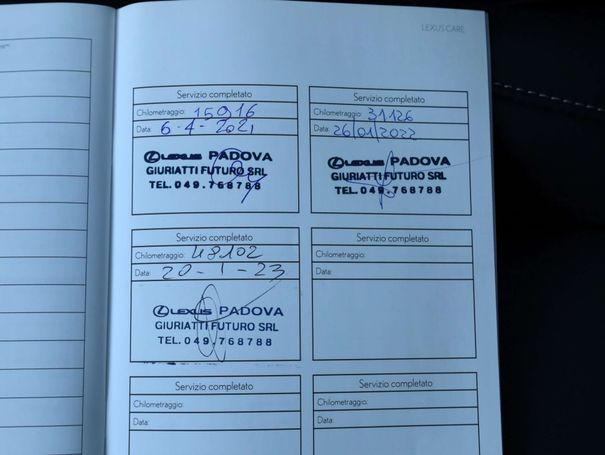 LEXUS CARE
Servizio completato
Chilometraggio: 15916
Data: 6-4-2021
LEXUS PADOVA
GIURIATTI FUTURO SRL
TEL. 049.768788
Servizio completato
Chilometraggio: 31126
Data: 26/01/2022
LEXUS PADOVA
GIURIATTI FUTURO SRL
TEL. 049.768788
Servizio completato
Chilometraggio: 48102
Data: 20-1-23
LEXUS PADOVA
GIURIATTI FUTURO SRL
TEL. 049.768788
Servizio completato
Chilometraggio:
Data:
Servizio completato
Chilometraggio:
Data:
Servizio completato
Chilometraggio:
Data: